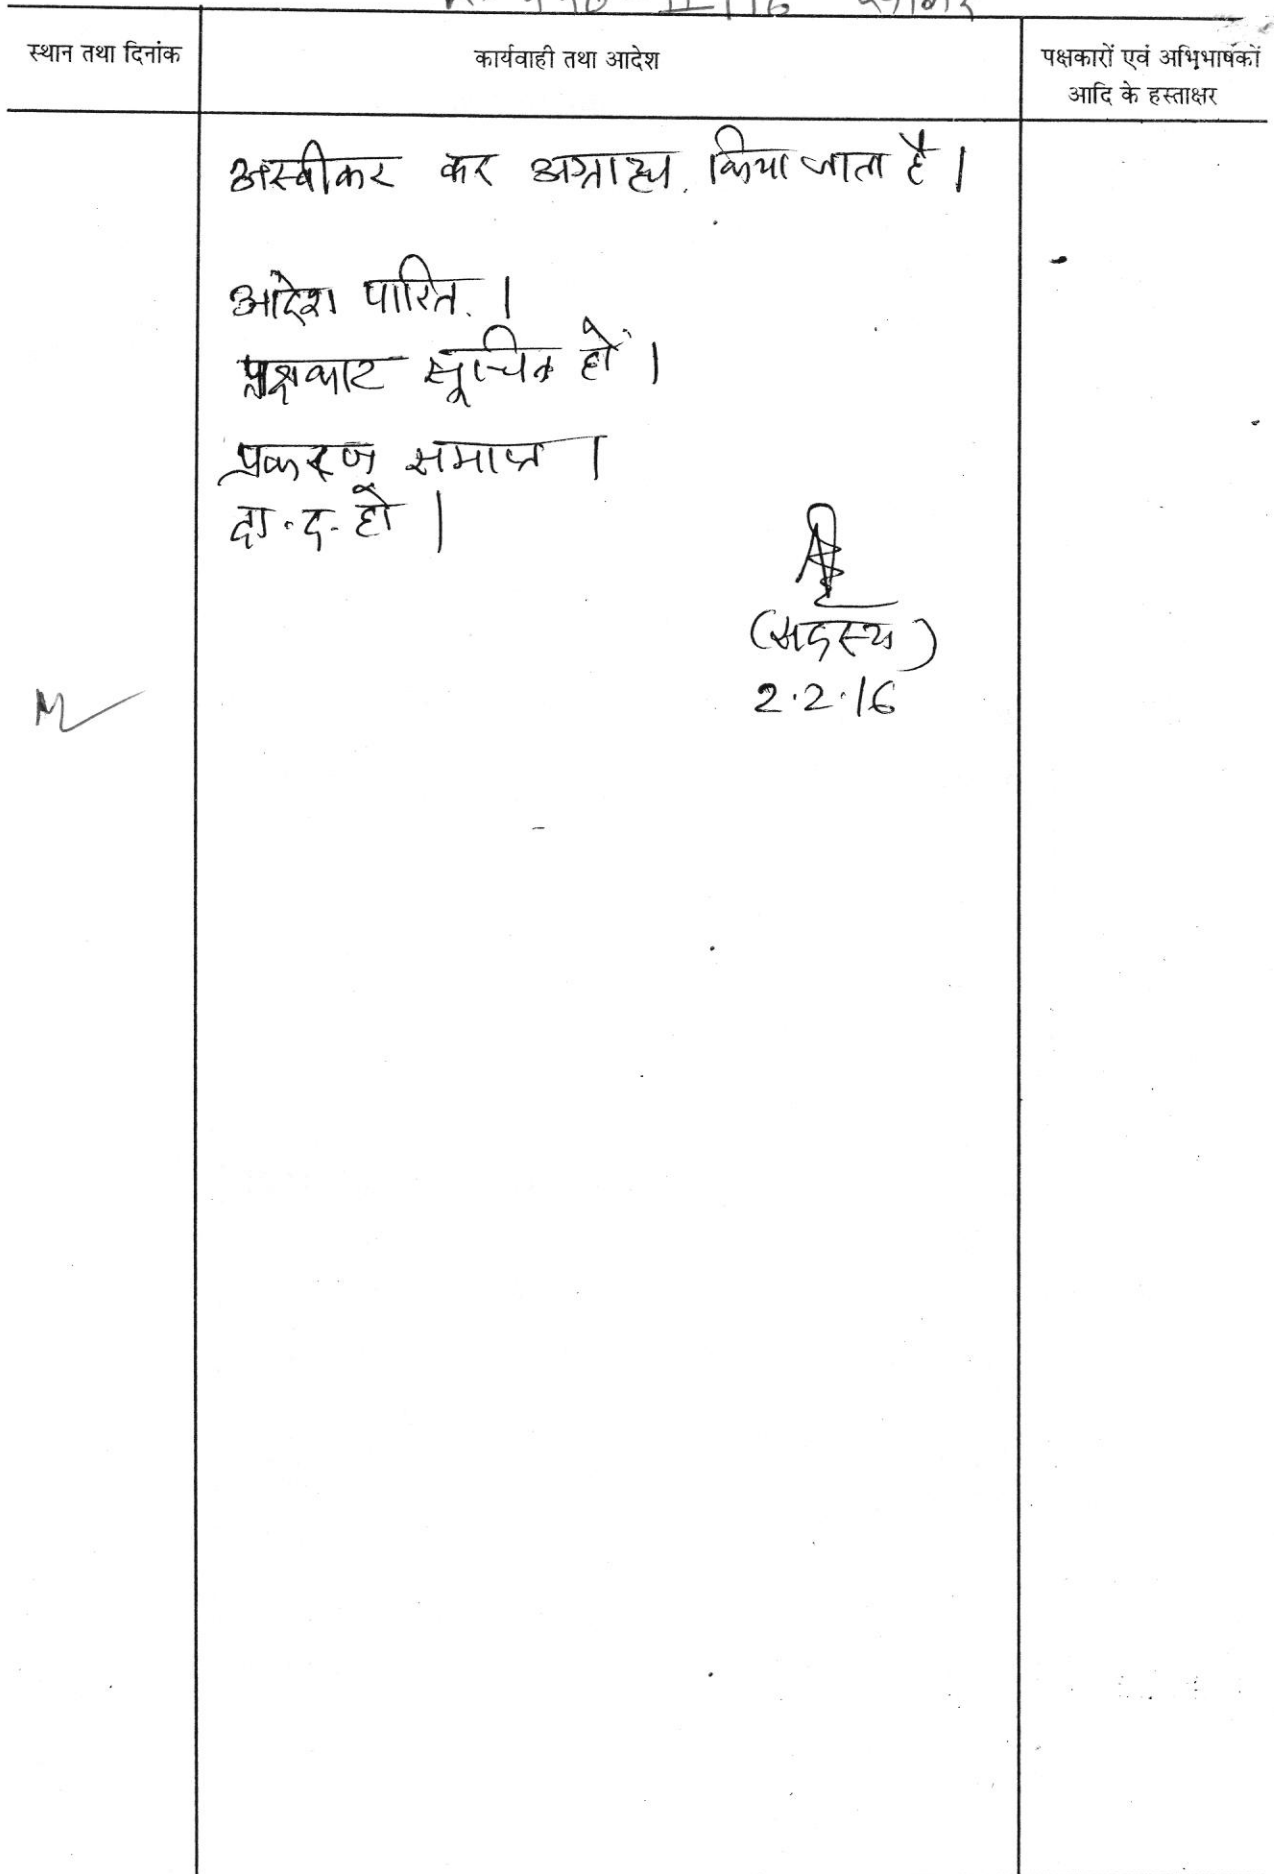 स्थान तथा दिनांक
कार्यवाही तथा आदेश
पक्षकारों एवं अभिभाषकों
आदि के हस्ताक्षर
अस्वीकर कर अग्राह्य किया जाता है ।
आदेश पारित ।
पक्षकार सूचित हों ।
प्रकरण समाप्त ।
दा.द. हो ।
(सदस्य)
2.2.16